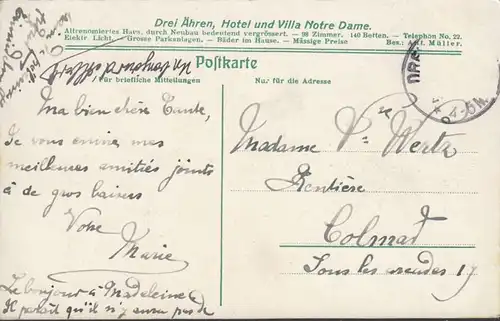 Drei Ähren, Hotel und Villa Notre Dame.
Altrenomiertes Haus, durch Neubau bedeutend vergrössert. — 98 Zimmer. 140 Betten. — Telephon No. 22.
Elektr. Licht. — Grosse Parkanlagen. — Bäder im Hause. — Mässige Preise Bes.: Ad. Müller.
Postkarte
Für briefliche Mitteilungen
Nur für die Adresse
Ma bien chère Tante,
Je vous envoie mes
meilleures amitiés joints
à de gros baisers
Votre
Marie
Le bonjour à Madeleine
Il paraît qu'il n'y aura pas de
Madame Vve Wertz
Rentière
Colmar
Sous les arcades 17